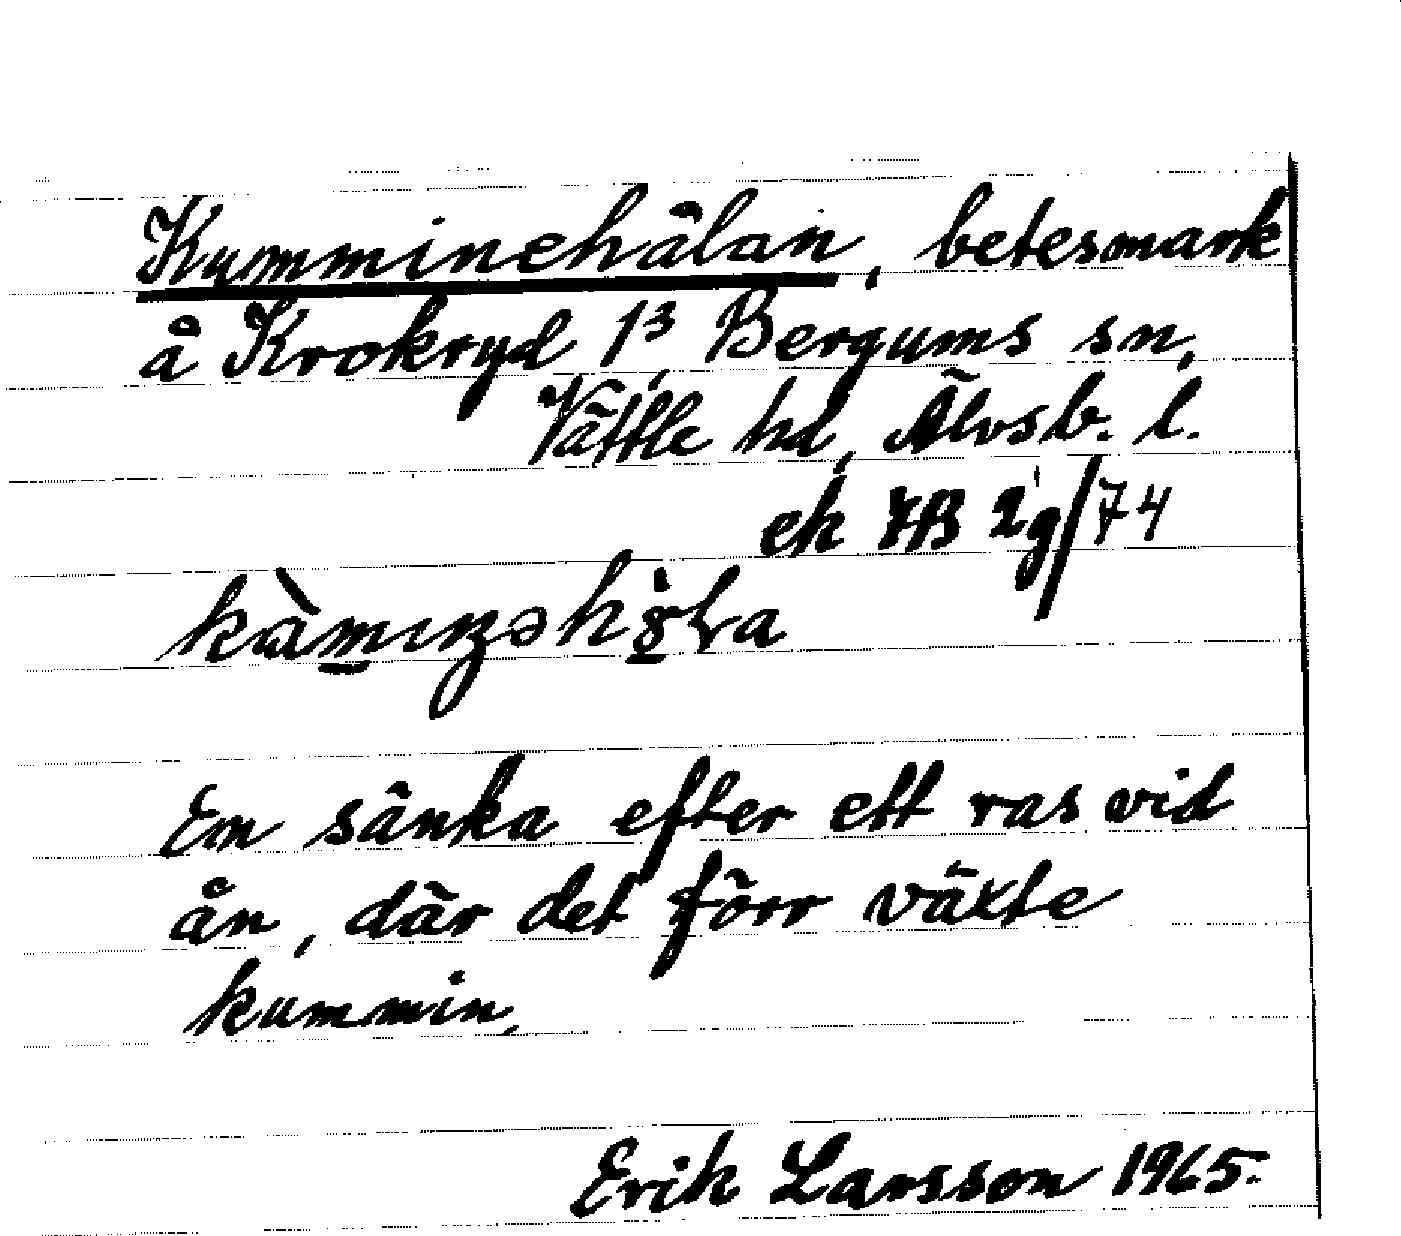 Kumminehålan, betesmark
å Krokryd 1³, Bergums sn,
Vättle hd, Älvsb. l.
ek 7B 2g/74
En sänka efter ett ras vid
ån, där det förr växte
kummin.
Erik Larsson 1965.